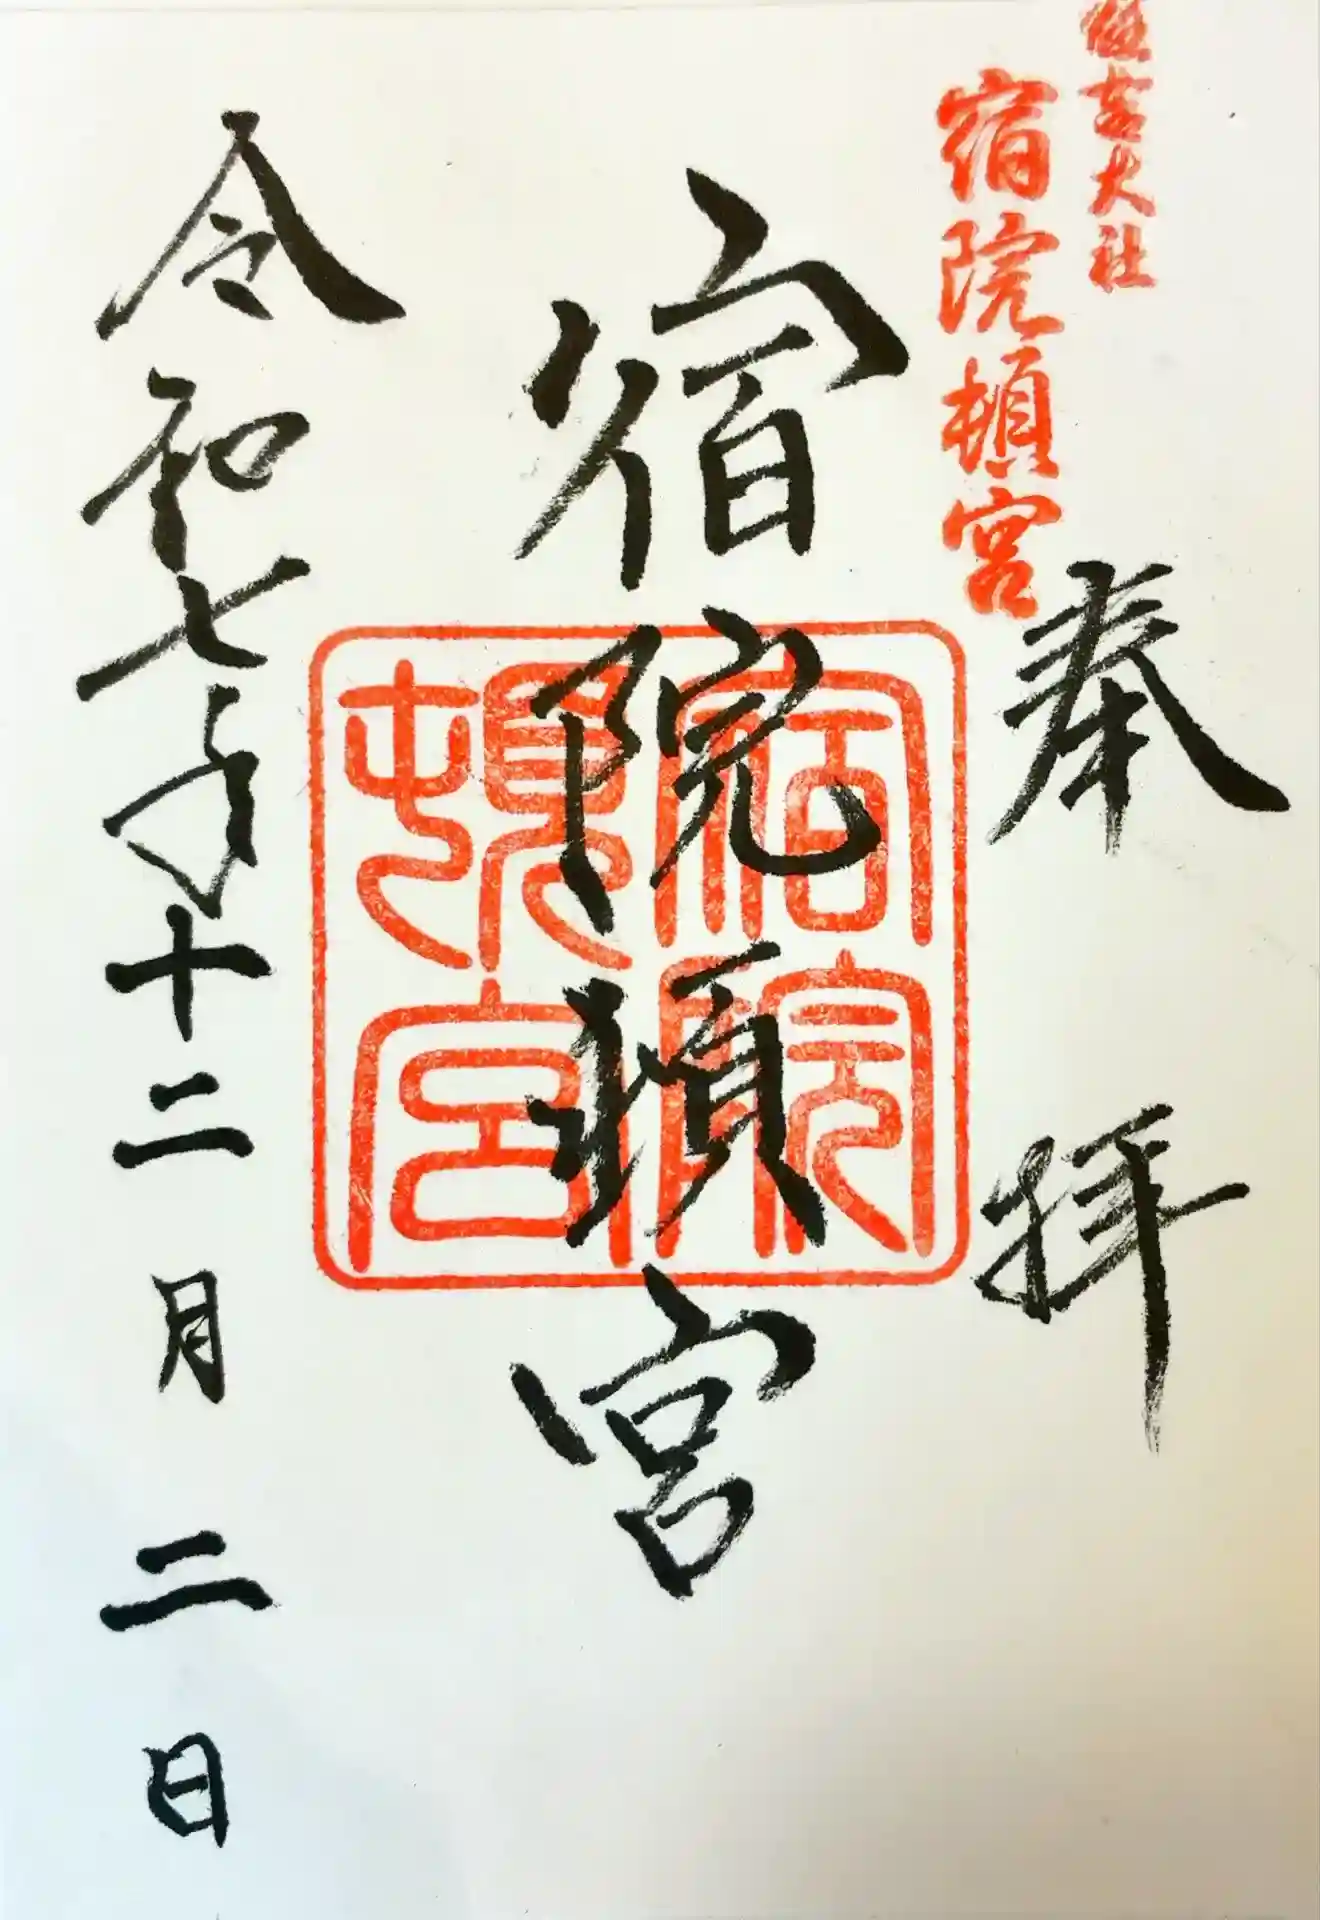 住吉大社
宿院頓宮
奉拝
宿院頓宮
宿院
頓宮
令和七年十二月二日